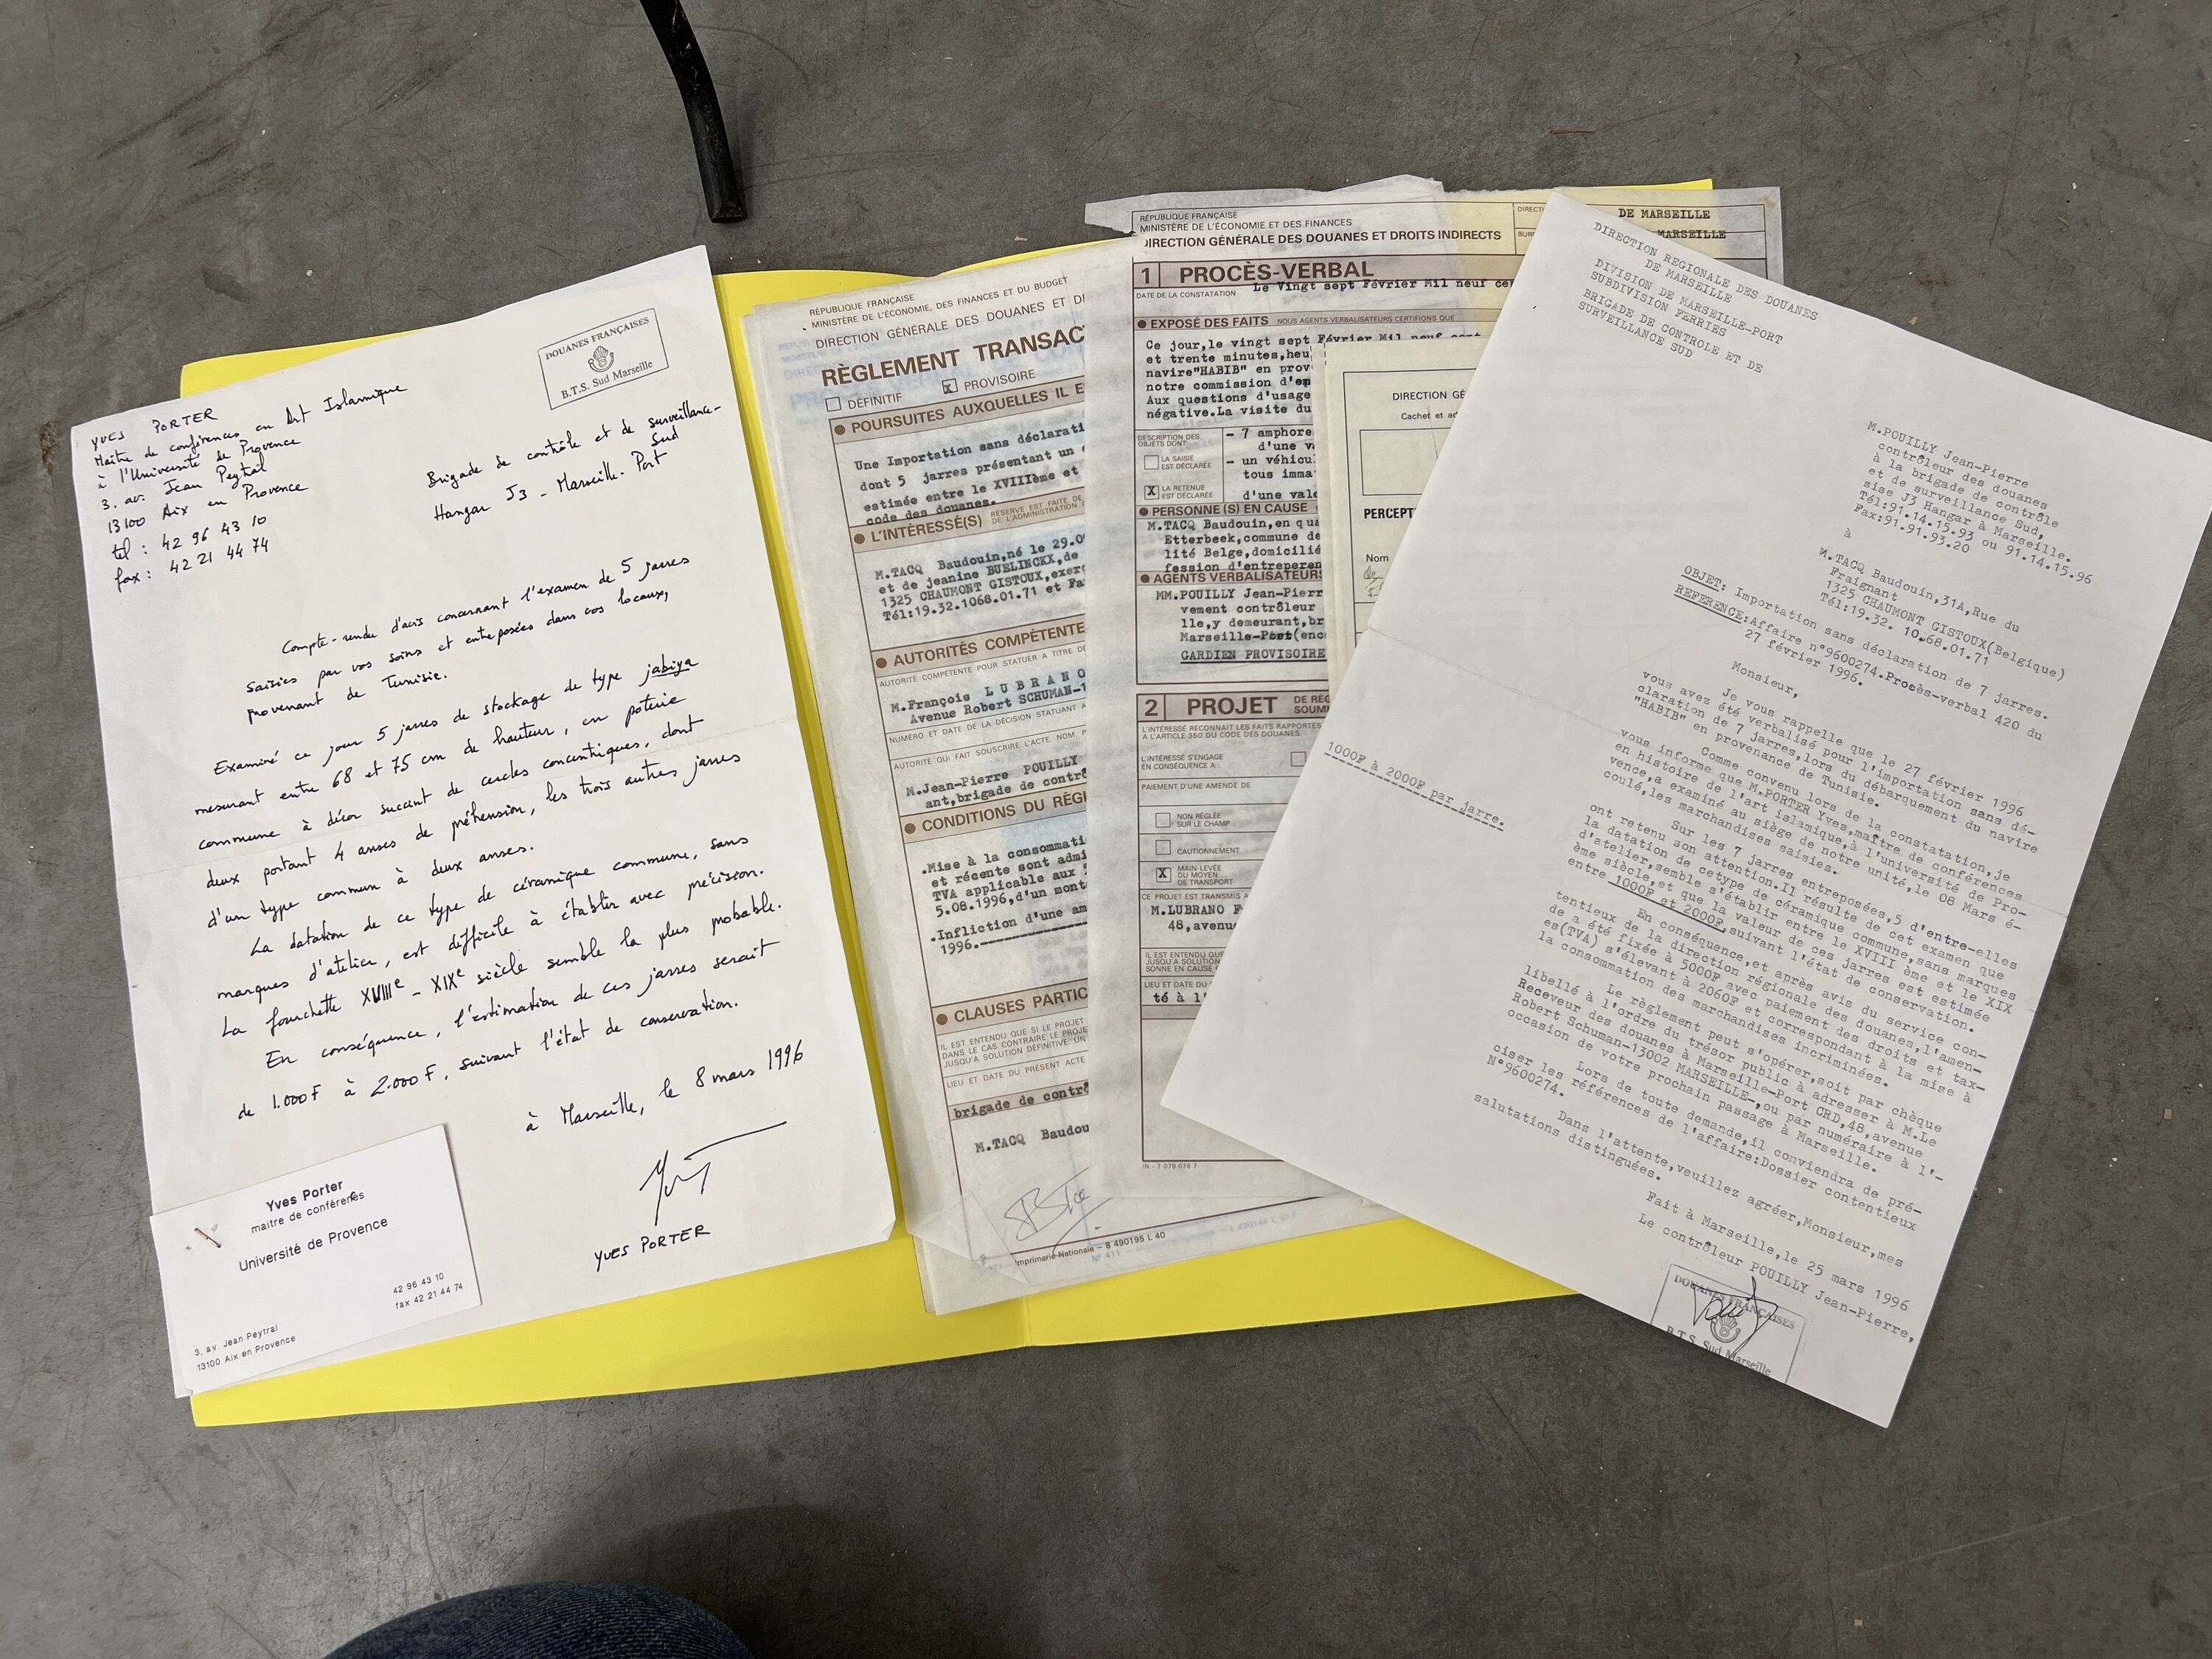 YVES PORTER
Maître de conférences en Art Islamique
à l'Université de Provence
3. av. Jean Peytral
13100 Aix en Provence
tel : 42 96 43 10
fax : 42 21 44 74
DOUANES FRANÇAISES
B.T.S. Sud Marseille
Brigade de contrôle et de surveillance-
Sud
Hangar J3 - Marseille-Port
Compte-rendu d'avis concernant l'examen de 5 jarres
saisies par vos soins et entreposées dans vos locaux,
provenant de Tunisie.
Examiné ce jour 5 jarres de stockage de type jabiya
mesurant entre 68 et 75 cm de hauteur, en poterie
commune à décor succint de cercles concentriques, dont
deux portant 4 anses de préhension, les trois autres jarres
d'un type commun à deux anses.
La datation de ce type de céramique commune, sans
marques d'atelier, est difficile à établir avec précision.
La fourchette XVIIIe - XIXe siècle semble la plus probable.
En conséquence, l'estimation de ces jarres serait
de 1.000F à 2.000F, suivant l'état de conservation.
à Marseille, le 8 mars 1996
YVES PORTER
Yves Porter
maitre de conférences
Université de Provence
42 96 43 10
fax 42 21 44 74
3. av. Jean Peytral
13100 Aix en Provence
RÉPUBLIQUE FRANÇAISE
MINISTÈRE DE L'ÉCONOMIE, DES FINANCES ET DU BUDGET
DIRECTION GÉNÉRALE DES DOUANES ET D
RÈGLEMENT TRANSAC
DÉFINITIF X PROVISOIRE
POURSUITES AUXQUELLES IL E
Une Importation sans déclarati
dont 5 jarres présentant un
estimée entre le XVIIIème et
code des douanes.
L'INTÉRESSÉ(S) RÉSERVE EST FAITE DE
DE L'ADMINISTRATION
M.TACQ Baudouin,né le 29.0
et de jeanine BUELINCKX,de
1325 CHAUMONT GISTOUX,exer
Tél:19.32.1068.01.71 et Fa
AUTORITÉS COMPÉTENTE
AUTORITÉ COMPÉTENTE POUR STATUER A TITRE DE
M.François LUBRANO
Avenue Robert SCHUMAN-1
NUMÉRO ET DATE DE LA DÉCISION STATUANT A
AUTORITÉ QUI FAIT SOUSCRIRE L'ACTE. NOM, P
M.Jean-Pierre POUILLY
ant,brigade de contrô
CONDITIONS DU RÈGL
.Mise à la consommati
et récente sont admi
TVA applicable aux
5.08.1996,d'un mont
.Infliction d'une am
1996.
CLAUSES PARTIC
IL EST ENTENDU QUE SI LE PROJET
DANS LE CAS CONTRAIRE LE PROJE
JUSQU'A SOLUTION DÉFINITIVE. UN
LIEU ET DATE DU PRÉSENT ACTE
brigade de contrô
M.TACQ Baudou
Imprimerie Nationale – 8 490195 L 40
RÉPUBLIQUE FRANÇAISE
MINISTÈRE DE L'ÉCONOMIE ET DES FINANCES
DIRECTION GÉNÉRALE DES DOUANES ET DROITS INDIRECTS
DIRECTI
DE MARSEILLE
BUR
MARSEILLE
1 PROCÈS-VERBAL
DATE DE LA CONSTATATION Le Vingt sept Février Mil neuf ce
EXPOSÉ DES FAITS NOUS AGENTS VERBALISATEURS CERTIFIONS QUE
Ce jour,le vingt sept Février Mil neuf cent
et trente minutes,heu
navire"HABIB" en prov
notre commission d'em
Aux questions d'usage
négative.La visite du
DESCRIPTION DES
OBJETS DONT
LA SAISIE
EST DÉCLARÉE
X LA RETENUE
EST DÉCLARÉE
- 7 amphore
d'une v
- un véhicul
tous imma
d'une vale
PERSONNE (S) EN CAUSE
M.TACQ Baudouin,en qua
Etterbeek,commune de
lité Belge,domicilié
fession d'entrepren
AGENTS VERBALISATEURS
MM.POUILLY Jean-Pierr
vement contrôleur
lle,y demeurant,br
Marseille-Port(enc
GARDIEN PROVISOIRE
2 PROJET DE RÈG
SOUM
L'INTÉRESSÉ RECONNAIT LES FAITS RAPPORTÉS
A L'ARTICLE 350 DU CODE DES DOUANES.
L'INTÉRESSÉ S'ENGAGE
EN CONSÉQUENCE A :
PAIEMENT D'UNE AMENDE DE
NON RÉGLÉE
SUR LE CHAMP
CAUTIONNEMENT
X MAIN-LEVÉE
DU MOYEN
DE TRANSPORT
CE PROJET EST TRANSMIS A
M.LUBRANO F
48,avenu
IL EST ENTENDU QUE
JUSQU'A SOLUTION
SONNE EN CAUSE
LIEU ET DATE DU
té à l'
IN - 7 078 076 7
DIRECTION GÉ
Cachet et ad
PERCEPT
Nom
DIRECTION REGIONALE DES DOUANES
DE MARSEILLE
DIVISION DE MARSEILLE-PORT
SUBDIVISION FERRIES
BRIGADE DE CONTROLE ET DE
SURVEILLANCE SUD
M.POUILLY Jean-Pierre
contrôleur des douanes
à la brigade de contrôle
et de surveillance Sud,
sise J3 Hangar à Marseille.
Tél:91.14.15.93 ou 91.14.15.96
Fax:91.91.93.20
à
M.TACQ Baudouin,31A,Rue du
Fraignant
1325 CHAUMONT GISTOUX(Belgique)
Tél:19.32. 10.68.01.71
OBJET: Importation sans déclaration de 7 jarres.
REFERENCE:Affaire n°9600274.Procès-verbal 420 du
27 février 1996.
Monsieur,
Je vous rappelle que le 27 février 1996
vous avez été verbalisé pour l'importation sans dé-
claration de 7 jarres,lors du débarquement du navire
"HABIB" en provenance de Tunisie.
Comme convenu lors de la constatation,je
vous informe que M.PORTER Yves,maître de conférences
en histoire de l'art islamique,à l'université de Pro-
vence,a examiné au siège de notre unité,le 08 Mars é-
coulé,les marchandises saisies.
Sur les 7 jarres entreposées,5 d'entre-elles
ont retenu son attention.Il résulte de cet examen que
la datation de cetype de céramique commune,sans marques
d'atelier,semble s'établir entre le XVIII ème et le XIX
ème siècle,et que la valeur de ces jarres est estimée
entre 1000F et 2000F,suivant l'état de conservation.
1000F à 2000F par jarre.
En conséquence,et après avis du service con-
tentieux de la direction régionale des douanes,l'amen-
de a été fixée à 5000F avec paiement des droits et tax-
es(TVA) s'élevant à 2060F et correspondant à la mise à
la consommation des marchandises incriminées.
Le règlement peut s'opérer,soit par chèque
libellé à l'ordre du trésor public à adresser à M.Le
Receveur des douanes à Marseille-Port CRD,48,avenue
Robert Schuman-13002 MARSEILLE-,ou par numéraire à l'-
occasion de votre prochain passage à Marseille.
Lors de toute demande,il conviendra de pré-
ciser les références de l'affaire:Dossier contentieux
N°9600274.
Dans l'attente,veuillez agréer,Monsieur,mes
salutations distinguées.
Fait à Marseille,le 25 mars 1996
Le contrôleur POUILLY Jean-Pierre,
DOUANES FRANÇAISES
B.T.S. Sud Marseille